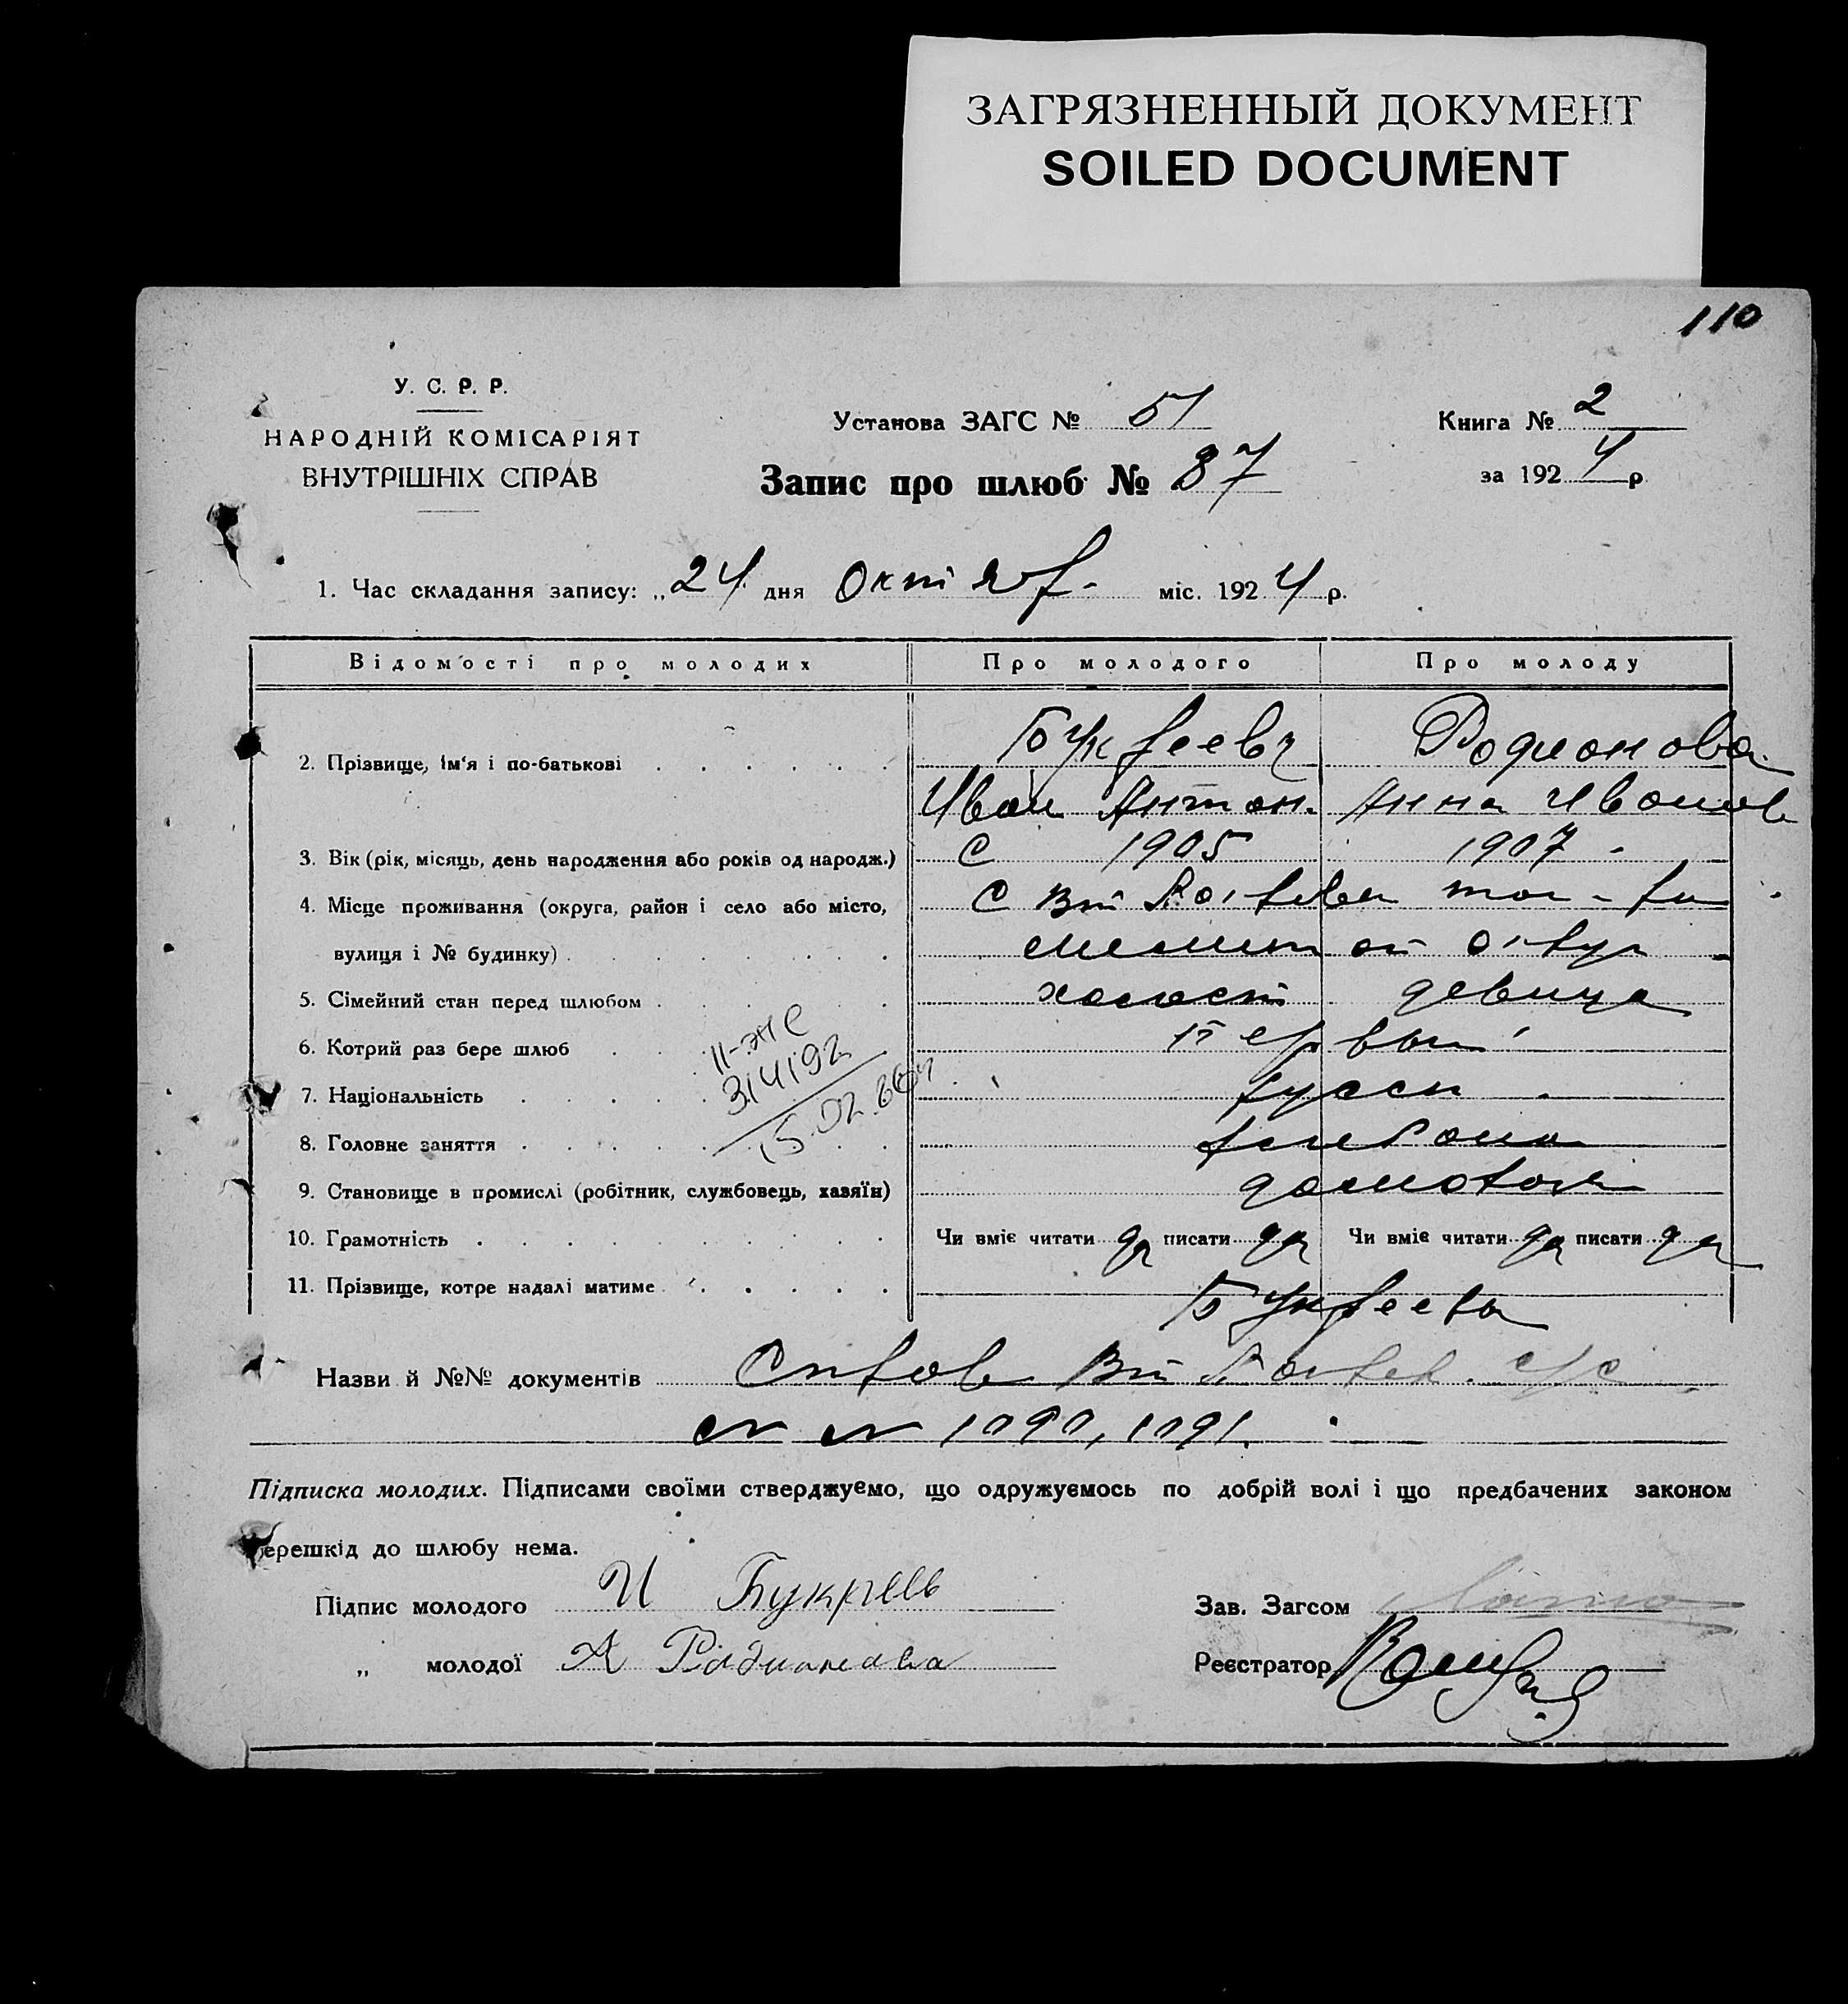 ЗАГРЯЗНЕННЫЙ ДОКУМЕНТ
SOILED DOCUMENT
110
У. С. Р. Р.
НАРОДНІЙ КОМІСАРІЯТ
ВНУТРІШНІХ СПРАВ
Установа ЗАГС № 51
Запис про шлюб № 87
Книга № 2
за 1924 р.
1. Час складання запису: „24 дня Октяб- міс. 1924 р.
Відомості про молодих Про молодого Про молоду
2. Прізвище, ім'я і по-батькові Букреевъ Родионова
Иван Антон. Анна Иванов
3. Вік (рік, місяць, день народження або років од народж.) С 1905 1907
4. Місце проживання (округа, район і село або місто, С
вулиця і № будинку)
5. Сімейний стан перед шлюбом холост девица
6. Котрий раз бере шлюб первый
7. Національність русск
8. Головне заняття
9. Становище в промислі (робітник, службовець, хазяїн)
10. Грамотність Чи вміє читати да писати да Чи вміє читати да писати да
11. Прізвище, котре надалі матиме Букреевы
II-ЖС
314192
15.02.
Назви й №№ документів с/с
1090, 1091.
Підписка молодих. Підписами своїми стверджуємо, що одружуємось по добрій волі і що предбачених законом
ерешкід до шлюбу нема.
Підпис молодого И Букреев
„ молодої А Радионова
Зав. Загсом
Реєстратор